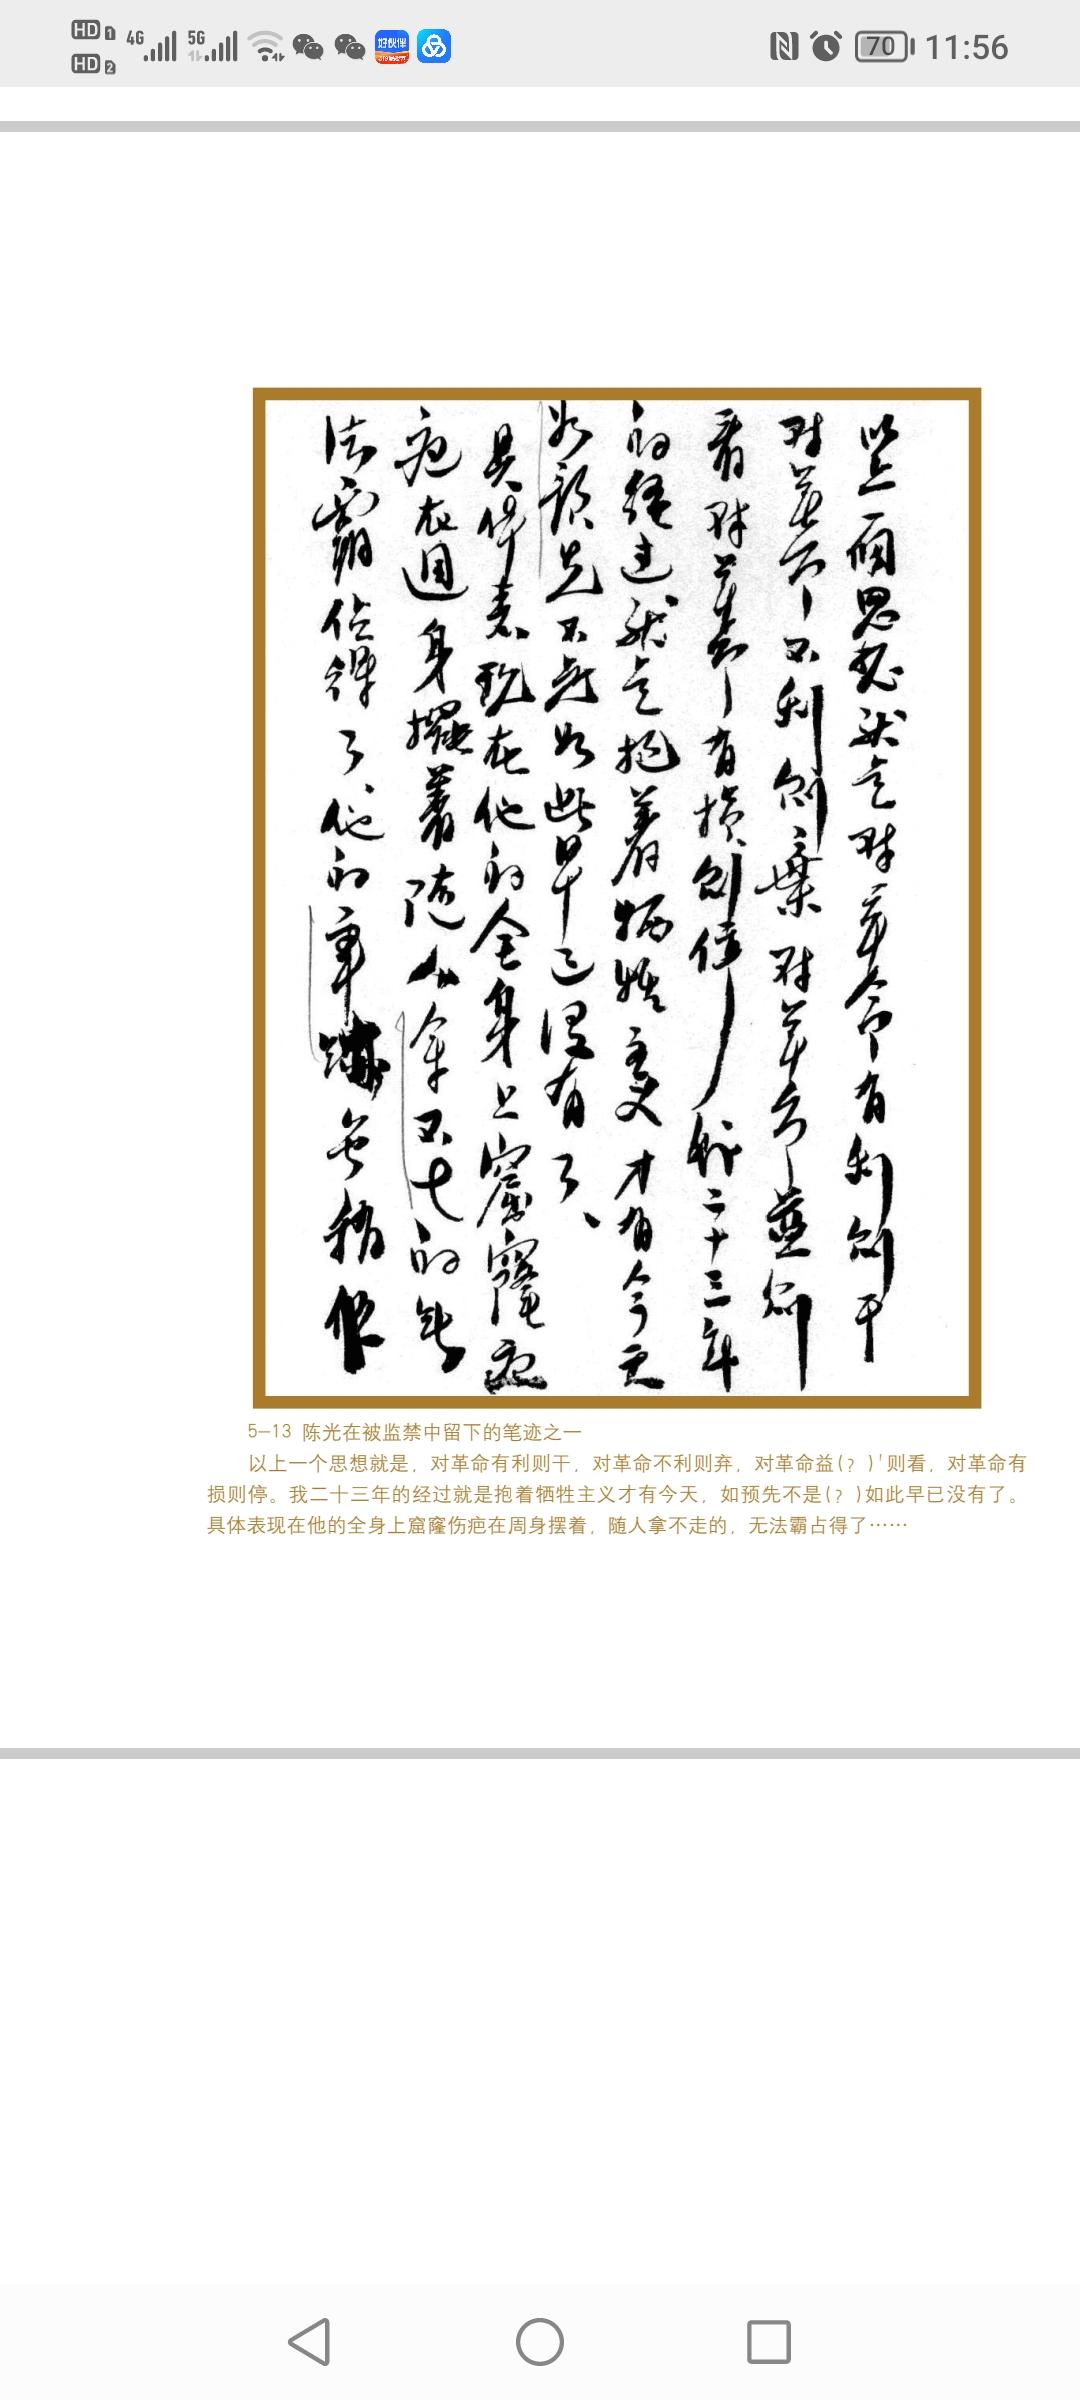 HD 1 4G 5G 70 11:56
HD 2
好伙伴
以上一個思想就是對革命有利則干
對革命不利則棄對革命益則
看對革命有损則停我二十三年
的経过就是抱着牺牲主义才有今天
如預先不是如此早已没有了、
具体表现在他的全身上窟窿
疤在週身擺着随人拿不走的
法霸佔得了、他的
5-13 陈光在被监禁中留下的笔迹之一
以上一个思想就是，对革命有利则干，对革命不利则弃，对革命益(？)'则看，对革命有
损则停。我二十三年的经过就是抱着牺牲主义才有今天，如预先不是(？)如此早已没有了。
具体表现在他的全身上窟窿伤疤在周身摆着，随人拿不走的，无法霸占得了……